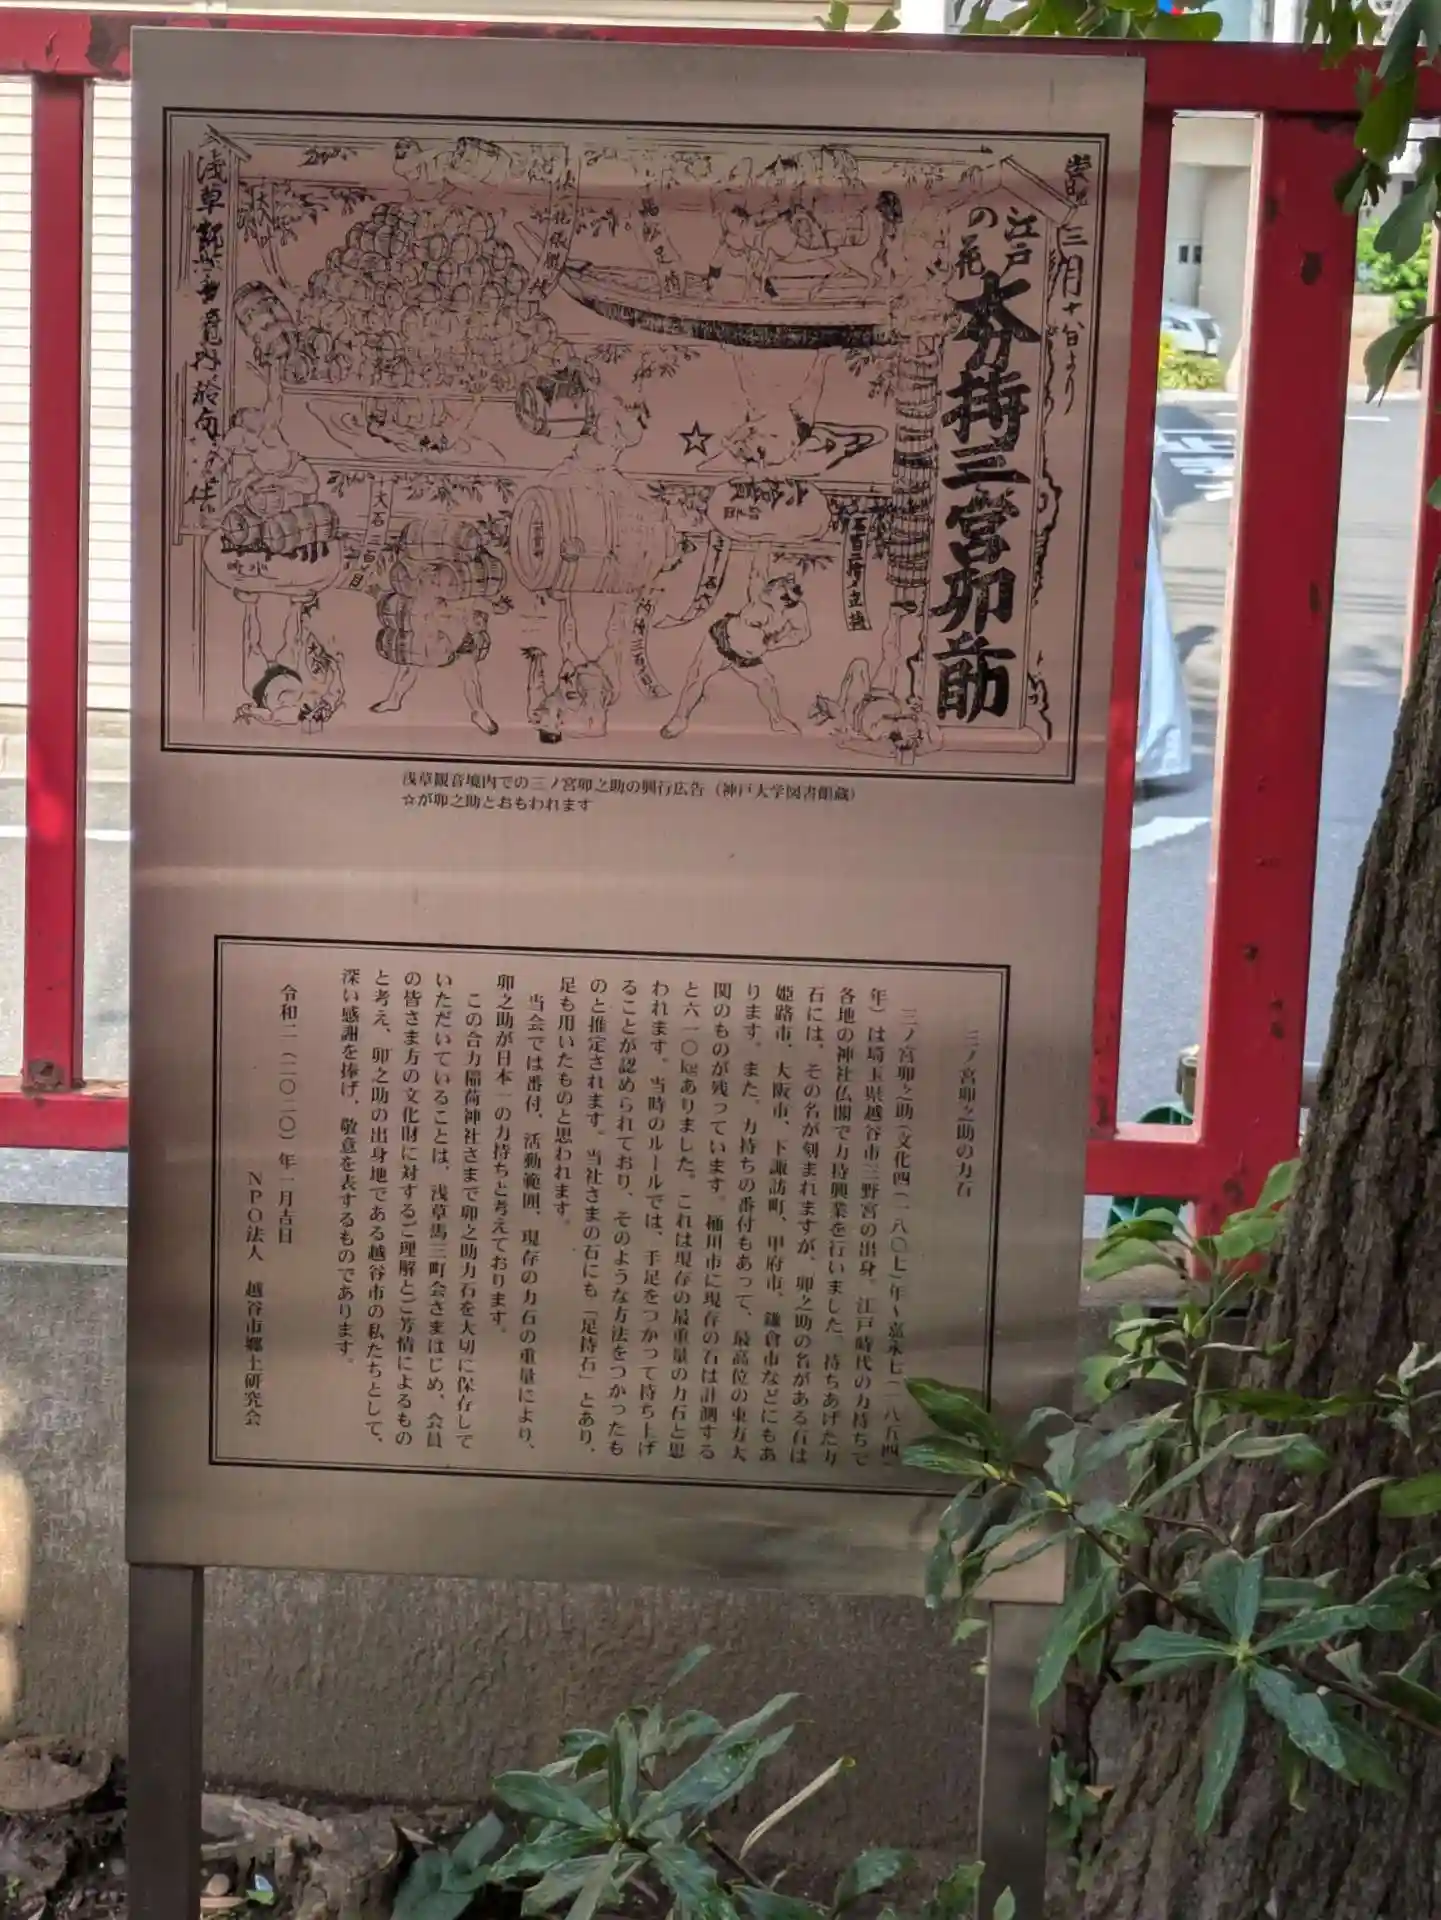 三月十七日より
江戸
の花
力持三宮卯之助
大石三百目
浅草観音境内での三ノ宮卯之助の興行広告（神戸大学図書館蔵）
☆が卯之助とおもわれます
三ノ宮卯之助の力石
三ノ宮卯之助（文化四（一八〇七）年～嘉永七（一八五四）
年）は埼玉県越谷市三野宮の出身。江戸時代の力持ちで
各地の神社仏閣で力持興業を行いました。持ちあげた力
石には、その名が刻まれますが、卯之助の名がある石は
姫路市、大阪市、下諏訪町、甲府市、鎌倉市などにもあ
ります。また、力持ちの番付もあって、最高位の東方大
関のものが残っています。桶川市に現存の石は計測する
と六一〇㎏ありました。これは現存の最重量の力石と思
われます。当時のルールでは、手足をつかって持ち上げ
ることが認められており、そのような方法をつかったも
のと推定されます。当社さまの石にも「足持石」とあり、
足も用いたものと思われます。
当会では番付、活動範囲、現存の力石の重量により、
卯之助が日本一の力持ちと考えております。
この合力稲荷神社さまで卯之助力石を大切に保存して
いただいていることは、浅草馬三町会さまはじめ、会員
の皆さま方の文化財に対するご理解とご芳情によるもの
と考え、卯之助の出身地である越谷市の私たちとして、
深い感謝を捧げ、敬意を表するものであります。
令和二（二〇二〇）年一月吉日
ＮＰＯ法人　越谷市郷土研究会